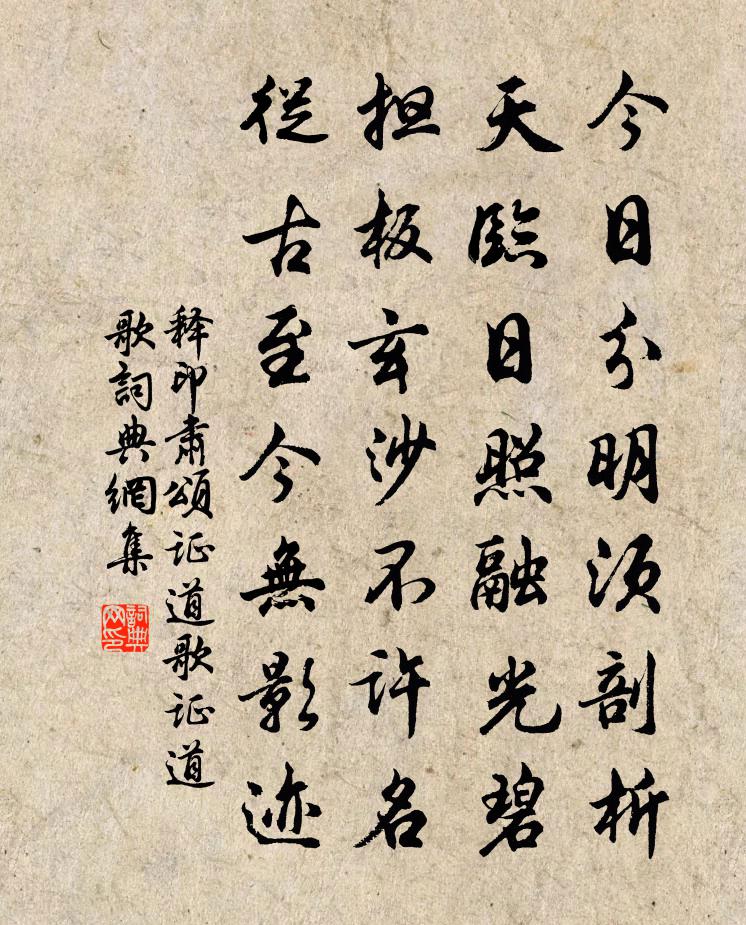 今日分明須剖析
天臨日照融光碧
担板玄沙不許名
從古至今無影迹
释印肃頌证道歌证道
歌詞典網集
詞典網印